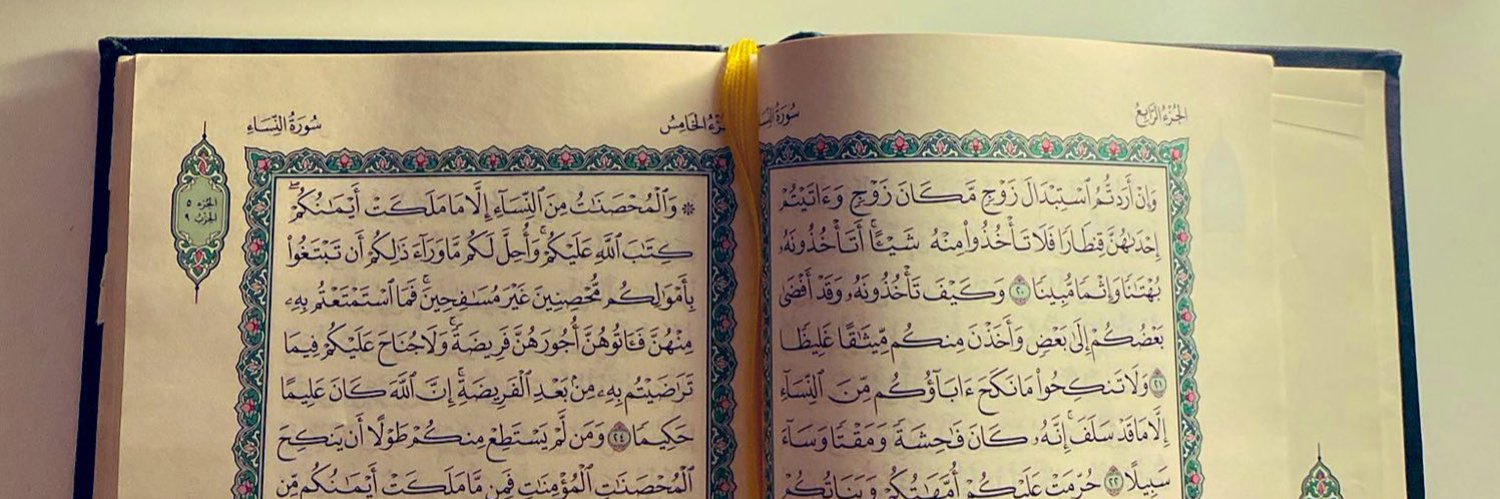 الجُزْءُ الرَّابِعُ
سُورَةُ النِّسَاءِ
وَإِنْ أَرَدتُّمُ ٱسْتِبْدَالَ زَوْجٍ مَّكَانَ زَوْجٍ وَءَاتَيْتُمْ
إِحْدَىٰهُنَّ قِنطَارًا فَلَا تَأْخُذُوا۟ مِنْهُ شَيْـًٔا ۚ أَتَأْخُذُونَهُۥ
بُهْتَٰنًا وَإِثْمًا مُّبِينًا ٢٠ وَكَيْفَ تَأْخُذُونَهُۥ وَقَدْ أَفْضَىٰ
بَعْضُكُمْ إِلَىٰ بَعْضٍ وَأَخَذْنَ مِنكُم مِّيثَٰقًا غَلِيظًا
٢١ وَلَا تَنكِحُوا۟ مَا نَكَحَ ءَابَآؤُكُم مِّنَ ٱلنِّسَآءِ
إِلَّا مَا قَدْ سَلَفَ ۚ إِنَّهُۥ كَانَ فَٰحِشَةً وَمَقْتًا وَسَآءَ
سَبِيلًا ٢٢ حُرِّمَتْ عَلَيْكُمْ أُمَّهَٰتُكُمْ وَبَنَاتُكُمْ
الجُزْءُ الخَامِسُ
سُورَةُ النِّسَاءِ
۞ وَٱلْمُحْصَنَٰتُ مِنَ ٱلنِّسَآءِ إِلَّا مَا مَلَكَتْ أَيْمَٰنُكُمْ ۖ
كِتَٰبَ ٱللَّهِ عَلَيْكُمْ ۚ وَأُحِلَّ لَكُم مَّا وَرَآءَ ذَٰلِكُمْ أَن تَبْتَغُوا۟
بِأَمْوَٰلِكُم مُّحْصِنِينَ غَيْرَ مُسَٰفِحِينَ ۚ فَمَا ٱسْتَمْتَعْتُم بِهِۦ
مِنْهُنَّ فَـَٔاتُوهُنَّ أُجُورَهُنَّ فَرِيضَةً ۚ وَلَا جُنَاحَ عَلَيْكُمْ فِيمَا
تَرَٰضَيْتُم بِهِۦ مِنۢ بَعْدِ ٱلْفَرِيضَةِ ۚ إِنَّ ٱللَّهَ كَانَ عَلِيمًا
حَكِيمًا ٢٤ وَمَن لَّمْ يَسْتَطِعْ مِنكُمْ طَوْلًا أَن يَنكِحَ
ٱلْمُحْصَنَٰتِ ٱلْمُؤْمِنَٰتِ فَمِن مَّا مَلَكَتْ أَيْمَٰنُكُم مِّن
الجزء ٥
الحزب ٩